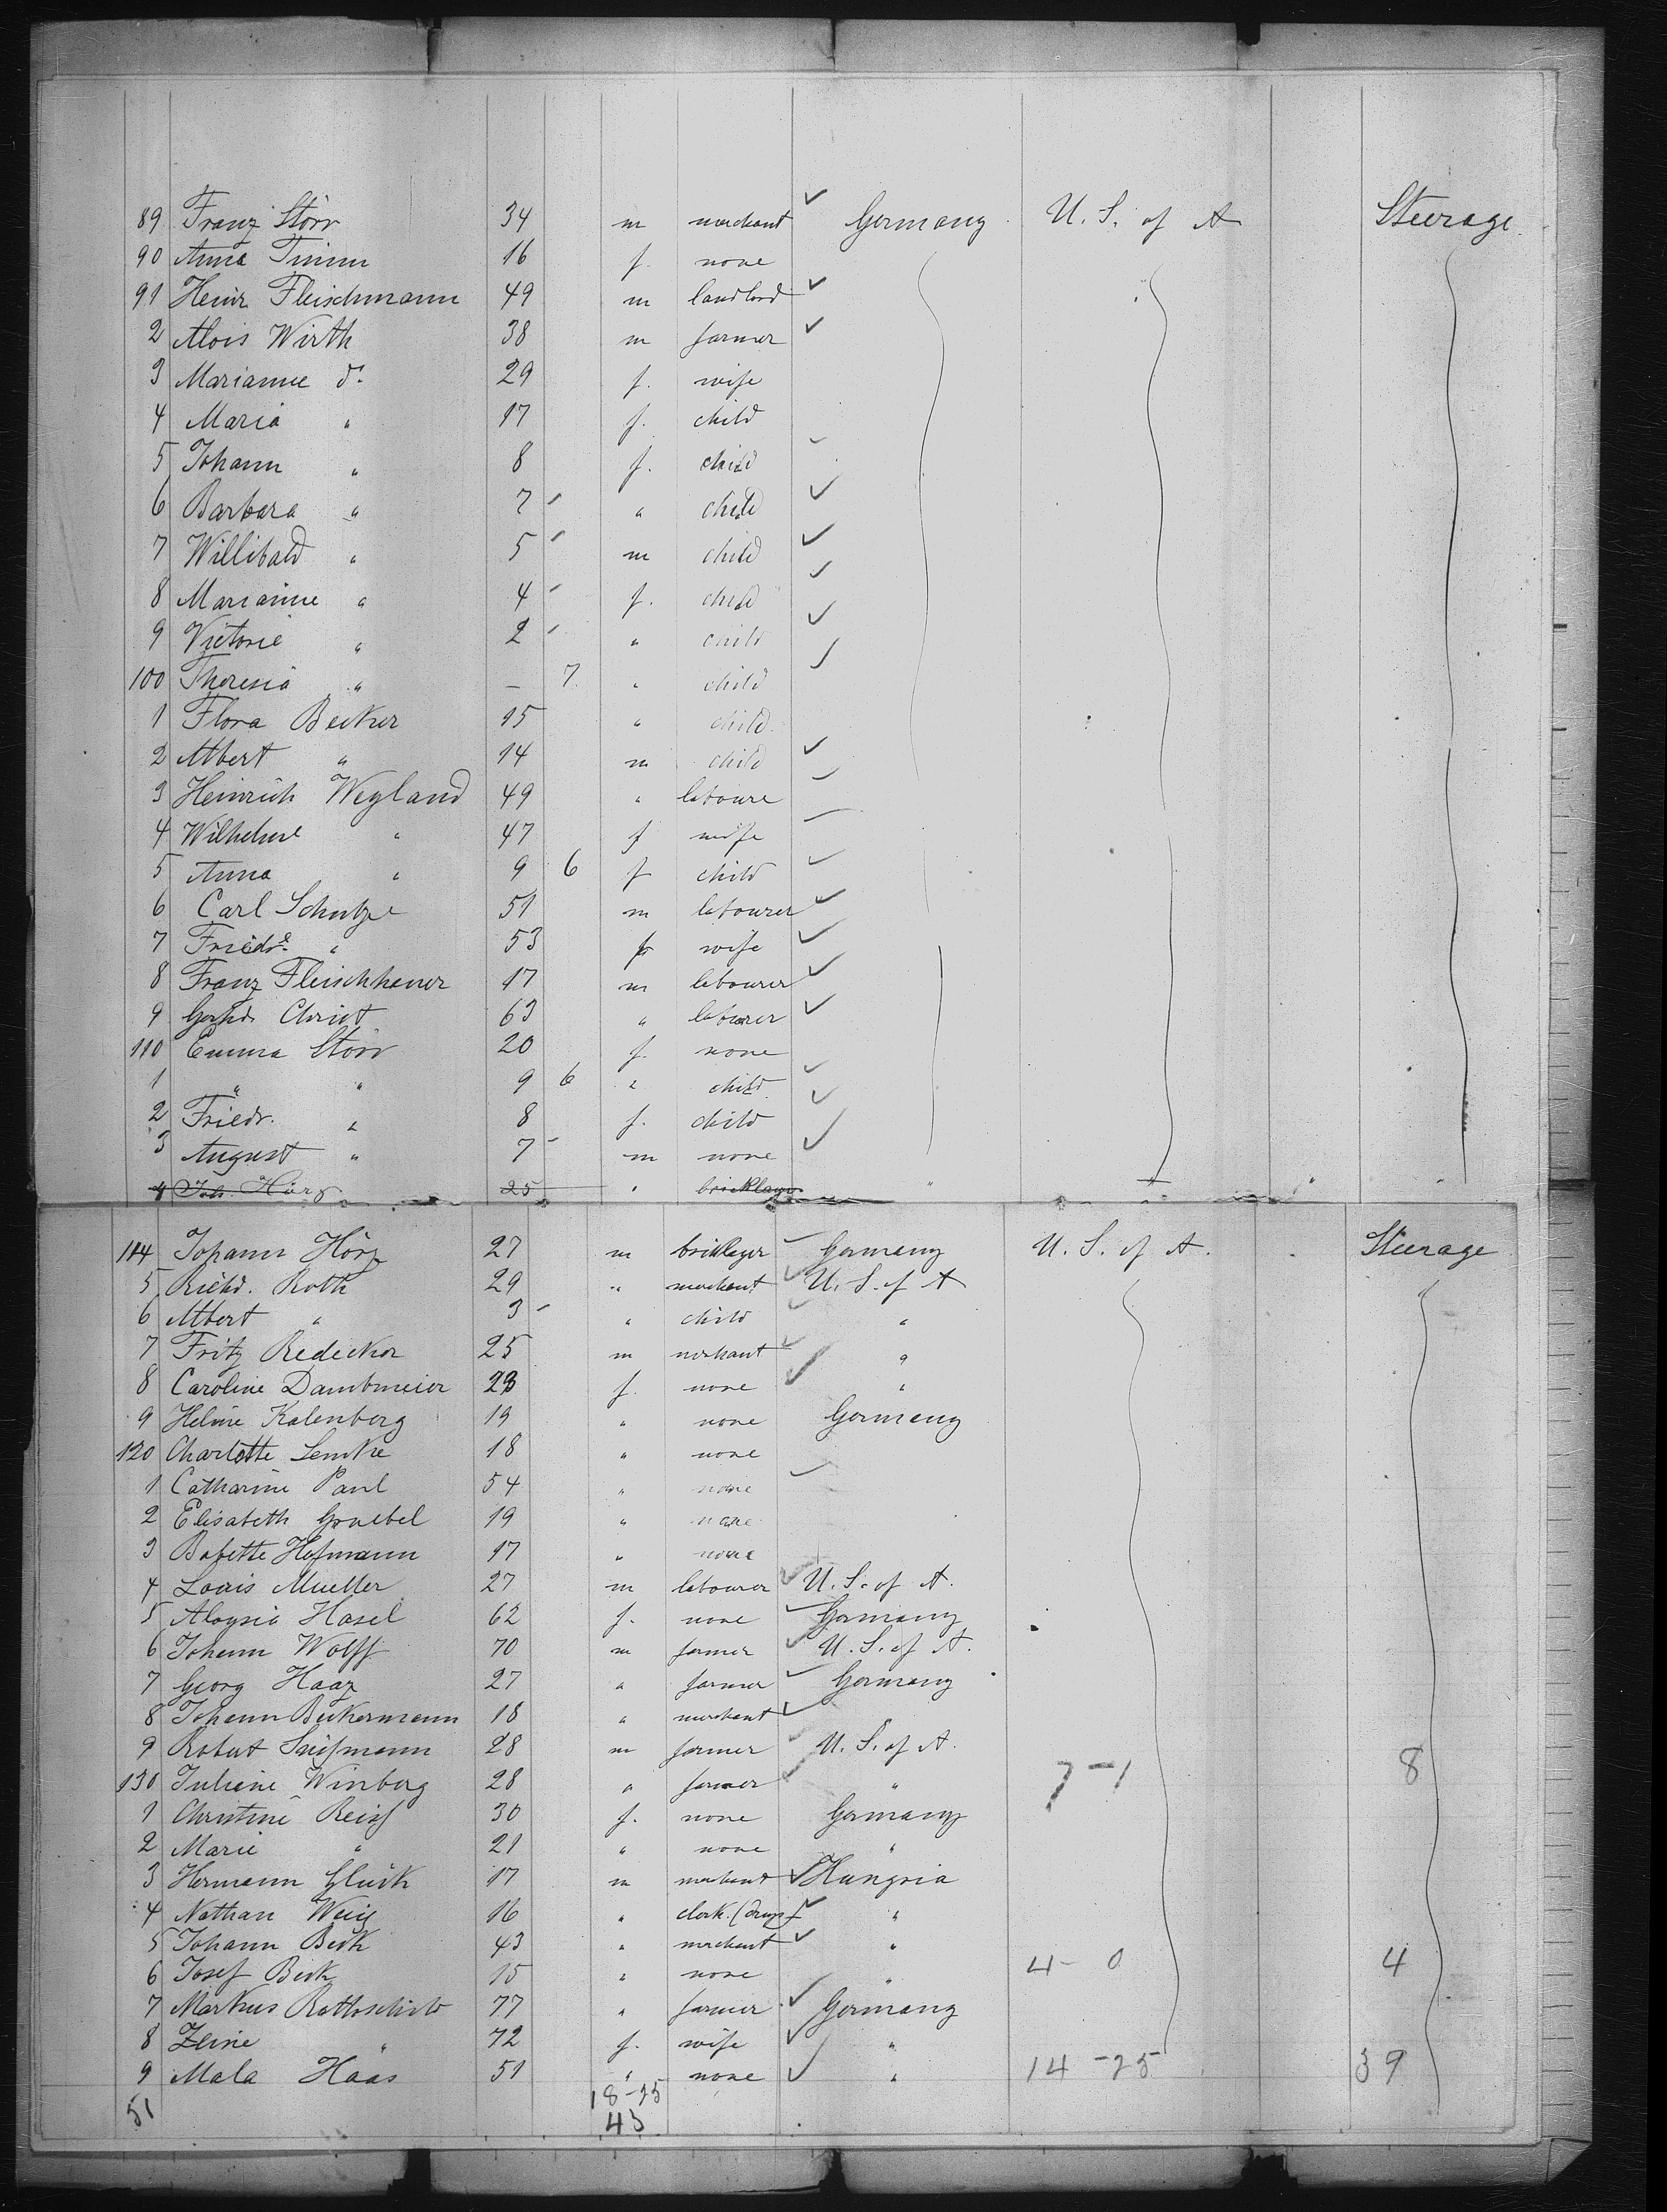 89 Franz Störr 34 m merchant ✓ Germany U. S. of A Steerage
90 Anna Timm 16 f. none
91 Heinr Fleischmann 49 m landlord ✓
2 Alois Wirth 38 m farmer ✓
3 Marianne do. 29 f. wife
4 Maria " 17 f. child
5 Johann " 8 f. child ✓
6 Barbara " 7 " child ✓
7 Willibald " 5 m child ✓
8 Marianne " 4 f. child ✓
9 Victorie " 2 " child ✓
100 Theresia " – 7 " child ✓
1 Flora Becker 15 " child
2 Albert " 14 m child ✓
3 Heinrich Weyland 49 " laboure ✓
4 Wilhelme " 47 f wife
5 Anna " 9 6 f child ✓
6 Carl Schutze 51 m labourer ✓
7 Friedre. " 53 f wife ✓
8 Franz Fleischhauer 17 m labourer ✓
9 Gerhd. Christ 63 " labourer ✓
110 Emma Störr 20 f. none
1 " " 9 6 " child ✓
2 Friedr. " 8 f. child ✓
3 August " 7 m none ✓
4 Joh. Hörz 25 " bricklayer "
114 Johann Hörz 27 m bricklayer ✓ Germany U. S. of A. Steerage
5 Richd. Roth 29 " merchant ✓ U. S. of A
6 Albert " 3 " child ✓ "
7 Fritz Redecker 25 m merhant ✓ "
8 Caroline Dambmeier 23 f. none ✓ "
9 Helme Kalenberg 19 " none Germany
120 Charlotte Lemke 18 " none
1 Catharine Paul 54 " none ✓
2 Elisabeth Groebel 19 " none
3 Babette Hofmann 17 " none
4 Louis Mueller 27 m labourer ✓ U. S. of A.
5 Aloysia Hasel 62 f. none ✓ Germany
6 Johann Wolff 70 m farmer ✓ U. S. of A.
7 Georg Haaz 27 " farmer ✓ Germany
8 Johann Beckermann 18 " merchant ✓
9 Robert 28 m farmer ✓ U. S. of A.
130 Juliene Winberg 28 " farmer ✓ " 7-1 8
1 Christine Reiss 30 f. none Germany
2 Marie " 21 " none "
3 Hermann Glück 17 m merchant ✓ Hungria
4 Nathan Weisz 16 " clerk. (Drugs) ✓ "
5 Johann Beck 43 " merchant ✓ "
6 Josef Beck 15 " none " 4- 0 4
7 Markus Rothschild 77 " farmer ✓ Germany
8 Zerine " 72 f. wife ✓ "
9 Mala Haas 51 " none ✓ " 14 -25 39
51 18-25
43